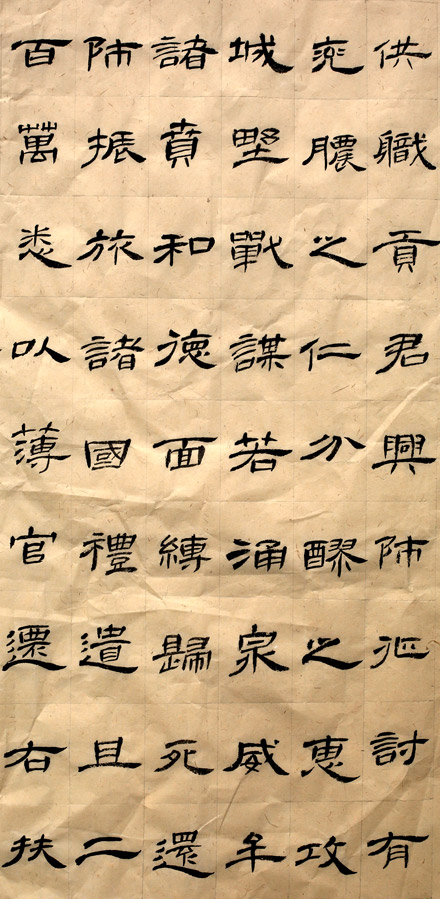 供職貢君興師征討有
兗膿之仁分醪之惠攻
城野戰謀若涌泉威牟
諸賁和德面縛歸死還
師振旅諸國禮遺且二
百萬悉以薄官遷右扶